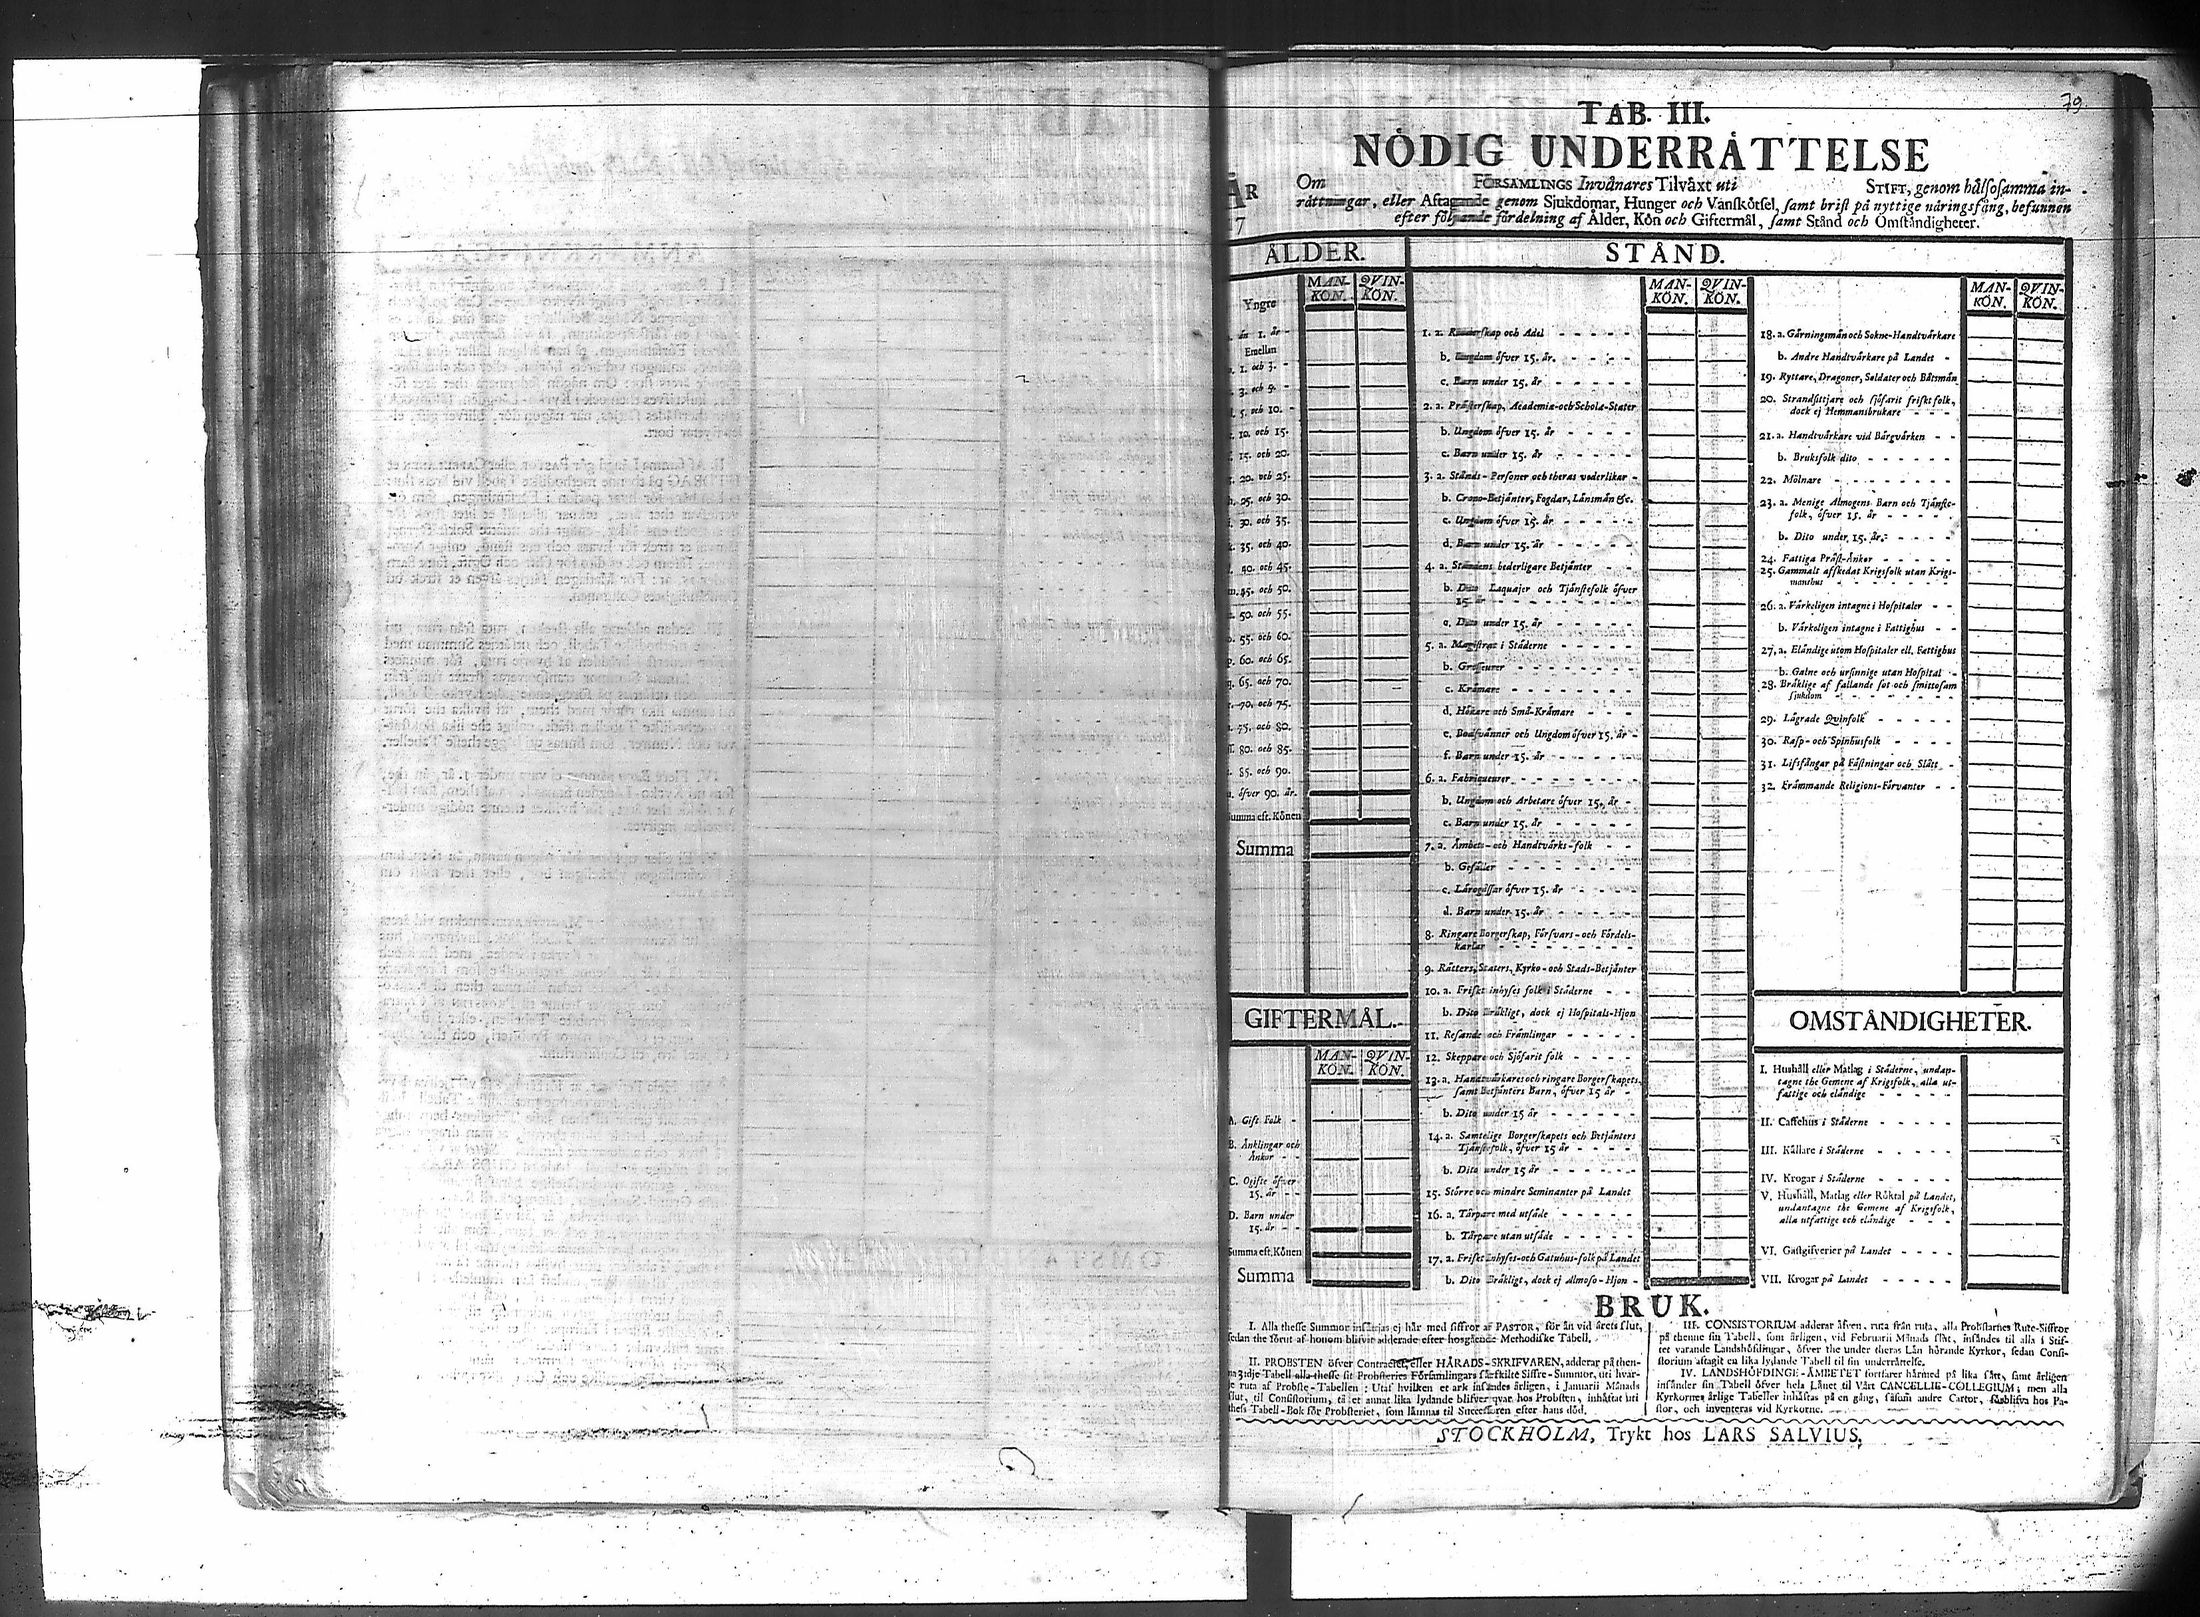 79
TAB. III.
NÖDIG UNDERRÄTTELSE
ÅR
17
Om FÖRSAMLINGS Invånares Tilväxt uti STIFT, genom hälsosamma in-
rättningar, eller Aftagande genom Sjukdomar, Hunger och Vanskötsel, samt brist på nyttige näringsfång, befunnen
efter följande fördelning af Ålder, Kön och Giftermål, samt Stånd och Omständigheter.
ÅLDER.
MAN-KÖN. QVIN-KÖN.
Yngre
än 1. år -
Emellan
1. och 3. -
3. och 5. -
5. och 10. -
10. och 15.
15. och 20.
20. och 25.
25. och 30.
30. och 35.
35. och 40.
40. och 45.
m. 45. och 50.
50. och 55.
55. och 60.
60. och 65.
65. och 70.
70. och 75.
75. och 80.
80. och 85.
85. och 90.
öfver 90. år.
Summa eft. Könen
Summa
GIFTERMÅL.
MAN-KÖN. QVIN-KÖN.
A. Gift Folk -
B. Änklingar och
Änkor - -
C. Ogifte öfver
15. år - -
D. Barn under
15. år - -
Summa eft. Könen
Summa
STÅND.
MAN-KÖN. QVIN-KÖN.
1. a. Ridderskap och Adel
b. Ungdom öfver 15. år.
c. Barn under 15. år
2. a. Prästerskap, Academiæ-och Scholæ-Stater
b. Ungdom öfver 15. år
c. Barn under 15. år
3. a. Stånds-Personer och theras vederlikar -
b. Crono-Betjänter, Fogdar, Länsmän &c.
c. Ungdom öfver 15. år
d. Barn under 15. år
4. a. Ståndens hederligare Betjänter
b. Dito Laquajer och Tjänstefolk öfver
15. år
c. Dito under 15. år
5. a. Magistrat i Städerne
b. Grosseurer
c. Krämare
d. Hökare och Små-Krämare
e. Bodsvänner och Ungdom öfver 15. år -
f. Barn under 15. år
6. a. Fabriqueurer
b. Ungdom och Arbetare öfver 15. år -
c. Barn under 15. år
7. a. Ämbets- och Handtvärks-folk
b. Gesäller
c. Lärogåssar öfver 15. år
d. Barn under 15. år
8. Ringare Borgerskap, Försvars- och Fördels-
karlar
9. Rätters, Staters, Kyrko- och Stads-Betjänter
10. a. Friskt inhyses folk i Städerne
b. Dito Bräkligt, dock ej Hospitals-Hjon
11. Resande och Främlingar
12. Skeppare och Sjöfarit folk
13. a. Handtvärkares och ringare Borgerskapets,
samt Betjänters Barn, öfver 15 år -
b. Dito under 15 år
14. a. Samtelige Borgerskapets och Betjänters
Tjänstefolk, öfver 15 år
b. Dito under 15 år
15. Större och mindre Seminanter på Landet
16. a. Tårpare med utsäde
b. Tårpare utan utsäde
17. a. Friskt Inhyses-och Gatuhus-folk på Landet
b. Dito Bräkligt, dock ej Almoso-Hjon -
MAN-KÖN. QVIN-KÖN.
18. a. Gärningsmän och Sokne-Handtvärkare
b. Andre Handtvärkare på Landet -
19. Ryttare, Dragoner, Soldater och Båtsmän
20. Strandsittjare och sjöfarit friskt folk,
dock ej Hemmansbrukare
21. a. Handtvärkare vid Bärgvärken
b. Bruksfolk dito
22. Mölnare
23. a. Menige Almogens Barn och Tjänste-
folk, öfver 15. år
b. Dito under 15. år.
24. Fattiga Präst-Änkor
25. Gammalt afskedat Krigsfolk utan Krigs-
manshus
26. a. Värkeligen intagne i Hospitaler
b. Värkeligen intagne i Fattighus
27. a. Eländige utom Hospitaler ell. Fattighus
b. Galne och ursinnige utan Hospital -
28. Bräklige af fallande sot och smittosam
sjukdom
29. Lägrade Qvinfolk
30. Rasp- och Spinhusfolk
31. Lifsfångar på Fästningar och Slått -
32. Främmande Religions-Förvanter
OMSTÄNDIGHETER.
I. Hushåll eller Matlag i Städerne, undan-
tagne the Gemene af Krigsfolk, alla ut-
fattige och eländige
II. Caffehus i Städerne
III. Källare i Städerne
IV. Krogar i Städerne
V. Hushåll, Matlag eller Röktal på Landet,
undantagne the Gemene af Krigsfolk,
alla utfattige och eländige
VI. Gästgifverier på Landet
VII. Krogar på Landet
BRUK.
I. Alla thesse Summor insättjas ej här med siffror af PASTOR, för än vid årets slut,
sedan the förut af honom blifvit adderade efter hosgående Methodiske Tabell.
II. PROBSTEN öfver Contractet, eller HÄRADS-SKRIFVAREN, adderar på then-
na 3:idje Tabell alla thesse sit Probsteries Församlingars särskilte Siffre-Summor, uti hvar-
je ruta af Probste-Tabellen: Utaf hvilken et ark insändes årligen, i Januarii Månads
slut, til Consistorium, så et annat lika lydande blifver qvar hos Probsten, inhäftat uti
thess Tabell-Bok för Probsteriet, som lämnas til Successoren efter hans död.
III. CONSISTORIUM adderar äfven, ruta från ruta, alla Probstarnes Rute-Siffror
på thenne sin Tabell, som årligen, vid Februarii Månads slut, insändes til alla i Stif-
tet varande Landshöfdingar, öfver the under theras Län hörande Kyrkor, sedan Consi-
storium aftagit en lika lydande Tabell til sin underrättelse.
IV. LANDSHÖFDINGE-ÄMBETET fortfarer härmed på lika sätt, samt årligen
insänder sin Tabell öfver hela Länet til Vårt CANCELLIE-COLLEGIUM; men alla
Kyrkornes årlige Tabeller inhäftas på en gång, såsom andre Cartor, hos Pa-
stor, och inventeras vid Kyrkorne.
STOCKHOLM, Trykt hos LARS SALVIUS.